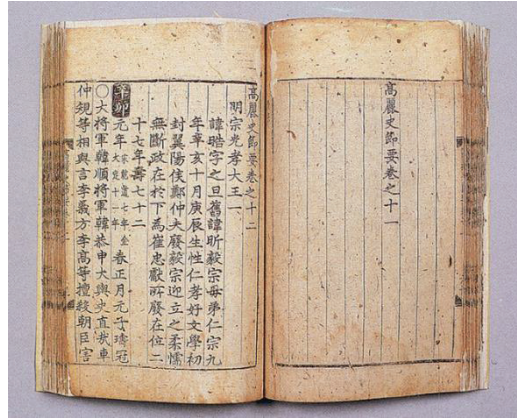 高麗史節要卷之十一
高麗史節要卷之十二
明宗光孝大王一
諱晧字之旦舊諱昕毅宗母弟仁宗九
年辛亥十月庚辰生性仁孝好文學初
封翼陽侯鄭仲夫廢毅宗迎立之柔懦
無斷政在於下為崔忠獻所廢在位二
十七年壽七十二
辛卯元年宋乾道七年金大定十一年春正月元子璹冠
○大將軍韓順將軍韓恭申大輿史直哉車
仲規等相與言李義方李高等擅殺朝臣害